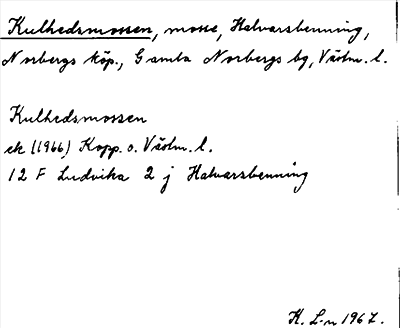 Kulhedsmossen, mosse, Halvarsbenning,
Norbergs köp., Gamla Norbergs bg, Västm. l.
Kulhedsmossen
ek (1966) Kopp. o. Västm. l.
12 F Ludvika 2 j Halvarsbenning
K. L-n 1967.